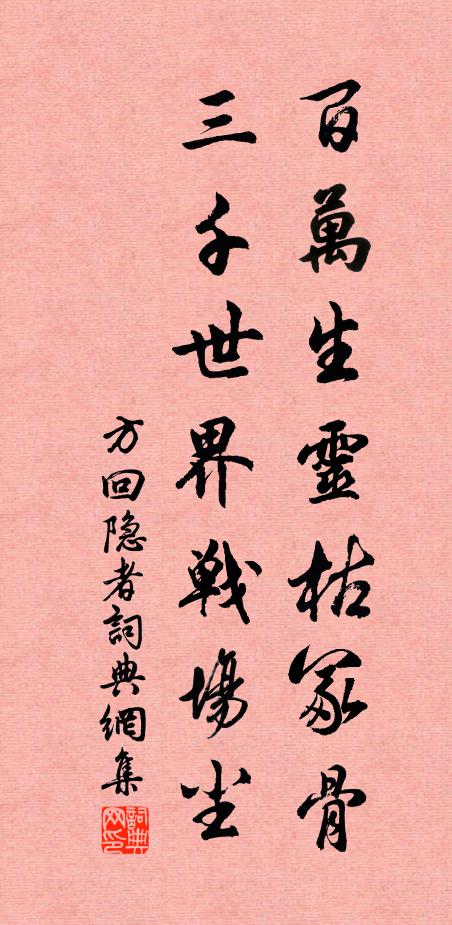 百萬生靈枯冢骨
三千世界戰場尘
方回隐者詞典網集
詞典网印